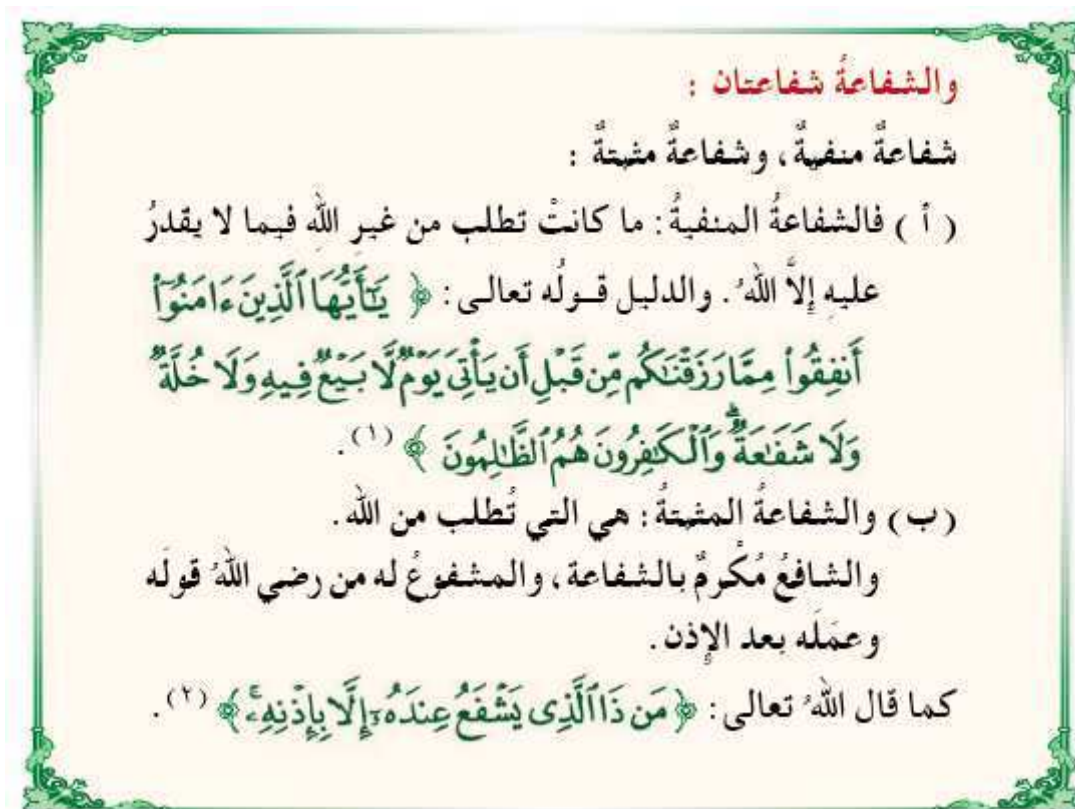 والشفاعةُ شفاعتان :
شفاعةٌ منفيةٌ، وشفاعةٌ مثبتةٌ :
( أ ) فالشفاعةُ المنفيةُ : ما كانتْ تطلب من غيرِ اللهِ فيما لا يقدرُ
عليهِ إلاَّ اللهُ. والدليل قـولُه تعالـى : ﴿ يَـٰٓأَيُّهَا ٱلَّذِينَ ءَامَنُوٓا۟
أَنفِقُوا۟ مِمَّا رَزَقْنَـٰكُم مِّن قَبْلِ أَن يَأْتِىَ يَوْمٌ لَّا بَيْعٌ فِيهِ وَلَا خُلَّةٌ
وَلَا شَفَـٰعَةٌ ۗ وَٱلْكَـٰفِرُونَ هُمُ ٱلظَّـٰلِمُونَ ﴾ (١).
(ب) والشفاعةُ المثبتةُ : هي التي تُطلب من الله.
والشافعُ مُكْرمٌ بالشفاعة، والمشفوعُ له من رضي اللهُ قولَه
وعمَلَه بعد الإِذن.
كما قال اللهُ تعالى : ﴿ مَن ذَا ٱلَّذِى يَشْفَعُ عِندَهُۥٓ إِلَّا بِإِذْنِهِۦ ۚ ﴾ (٢).